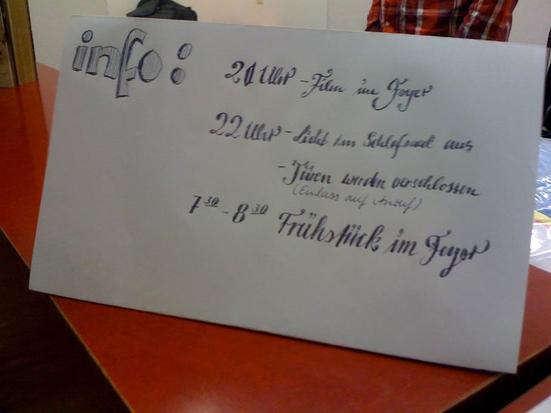 info:
20 Uhr - Film im Foyer
22 Uhr - Licht im Schlafsaal aus
- Türen werden verschlossen
(Einlass auf Anruf)
7 30 - 8 30 Frühstück im Foyer